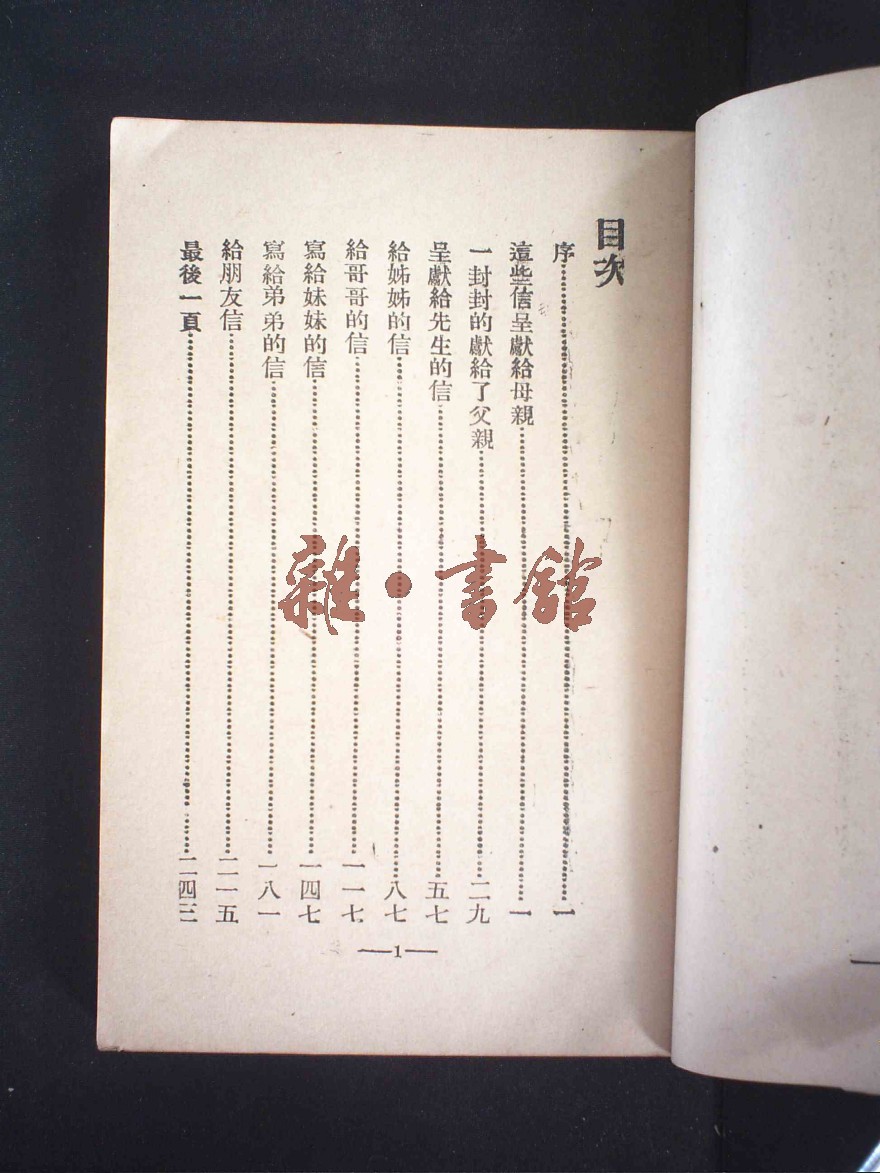 目次
序……一
這些信呈獻給母親……一
一封封的獻給了父親……二九
呈獻給先生的信……五七
給姊姊的信……八七
給哥哥的信……一一七
寫給妹妹的信……一四七
寫給弟弟的信……一八一
給朋友信……二一五
最後一頁……二四三
—1—
雜·書館